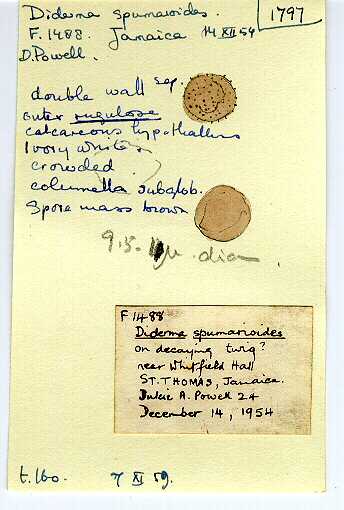 Diderma spumarioides.
1797
F. 1488. Jamaica 14 XII 54
D. Powell.
double wall sep.
outer rugulose
calcareous hypothallus
Ivory white
crowded
columella subglob.
Spore mass brown
9.5- µ. diam
F 1488
Diderma spumarioides
on decaying twig?
near Whitfield Hall
ST. THOMAS, Jamaica.
Dulcie A. Powell 24
December 14, 1954
t. lbo. 7 XI 59.